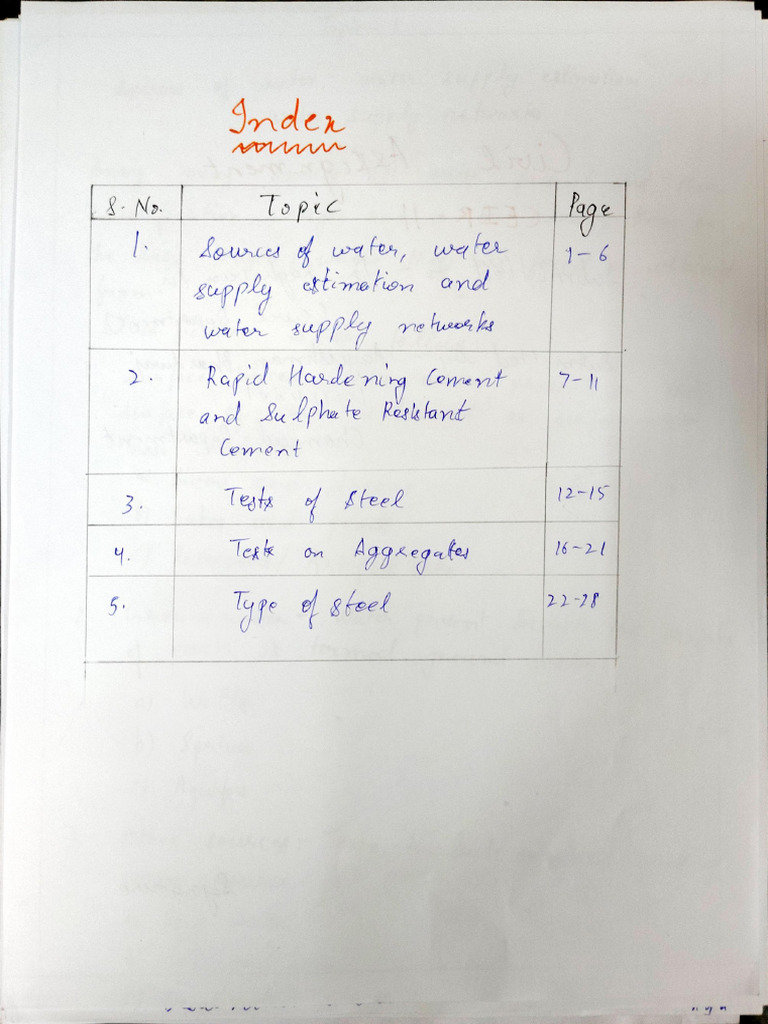 Index
S. No. Topic Page
1. Sources of water, water 1-6
supply estimation and
water supply networks
2. Rapid Hardening Cement 7-11
and Sulphate Resistant
Cement
3. Tests of Steel 12-15
4. Tests on Aggregates 16-21
5. Type of Steel 22-28